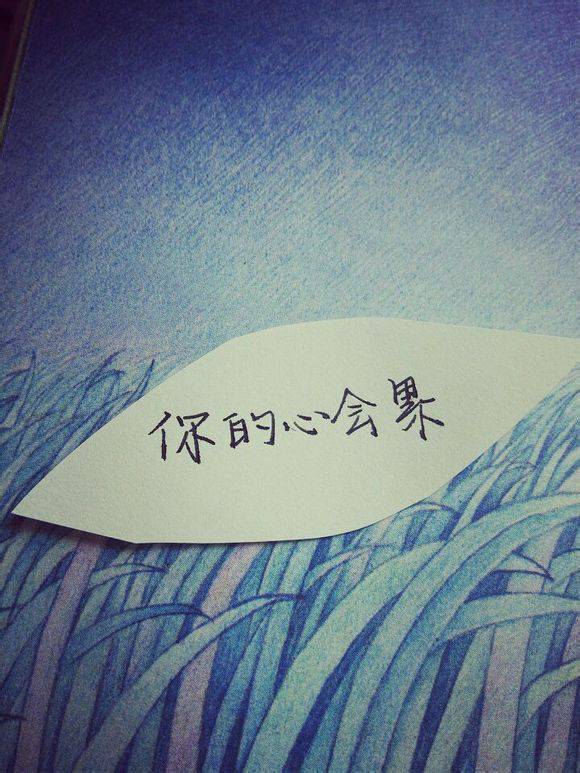 你的心会累